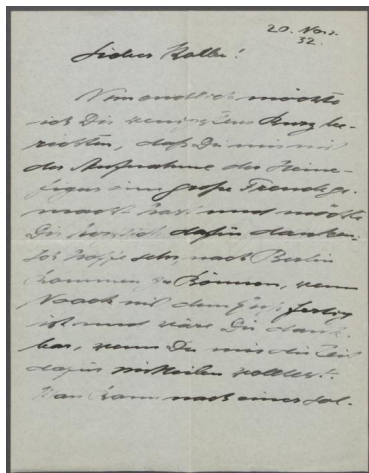 20. Nov.
32.
Lieber Kolbe!
Nun endlich möchte
ich Dir wenigstens kurz be-
richten, daß Du mir mit
der Aufnahme der Heine-
figur eine große Freude ge-
macht hast und möchte
Dir herzlich dafür danken.
Ich hoffe sehr, nach Berlin
kommen zu können, wenn
Noack mit dem Guß fertig
ist und wäre Dir dank-
bar, wenn Du mir die Zeit
dafür mitteilen wolltest.
Man kann nach einer sol-